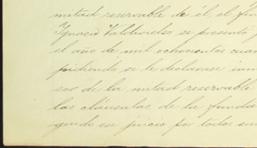 mitad reservable de él el fun
Ignacio Valdivieso se presentó
el año de mil ochocientos cuar
pidiendo se le declarase inm
sor de la mitad reservable
las cláusulas de la funda
guido en juicio por todos sus